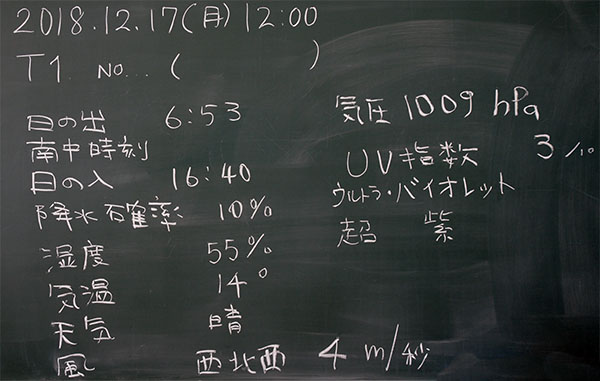 2018.12.17(月) 12:00
T1 No... ( )
日の出 6:53
南中時刻
日の入 16:40
降水確率 10%
湿度 55%
気温 14°
天気 晴
風 西北西 4 m/秒
気圧 1009 hPa
UV指数 3/10
ウルトラ・バイオレット
超 紫